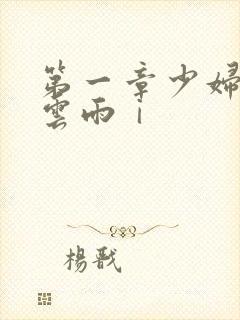 第一章少婦
雲雨｜
楊戩